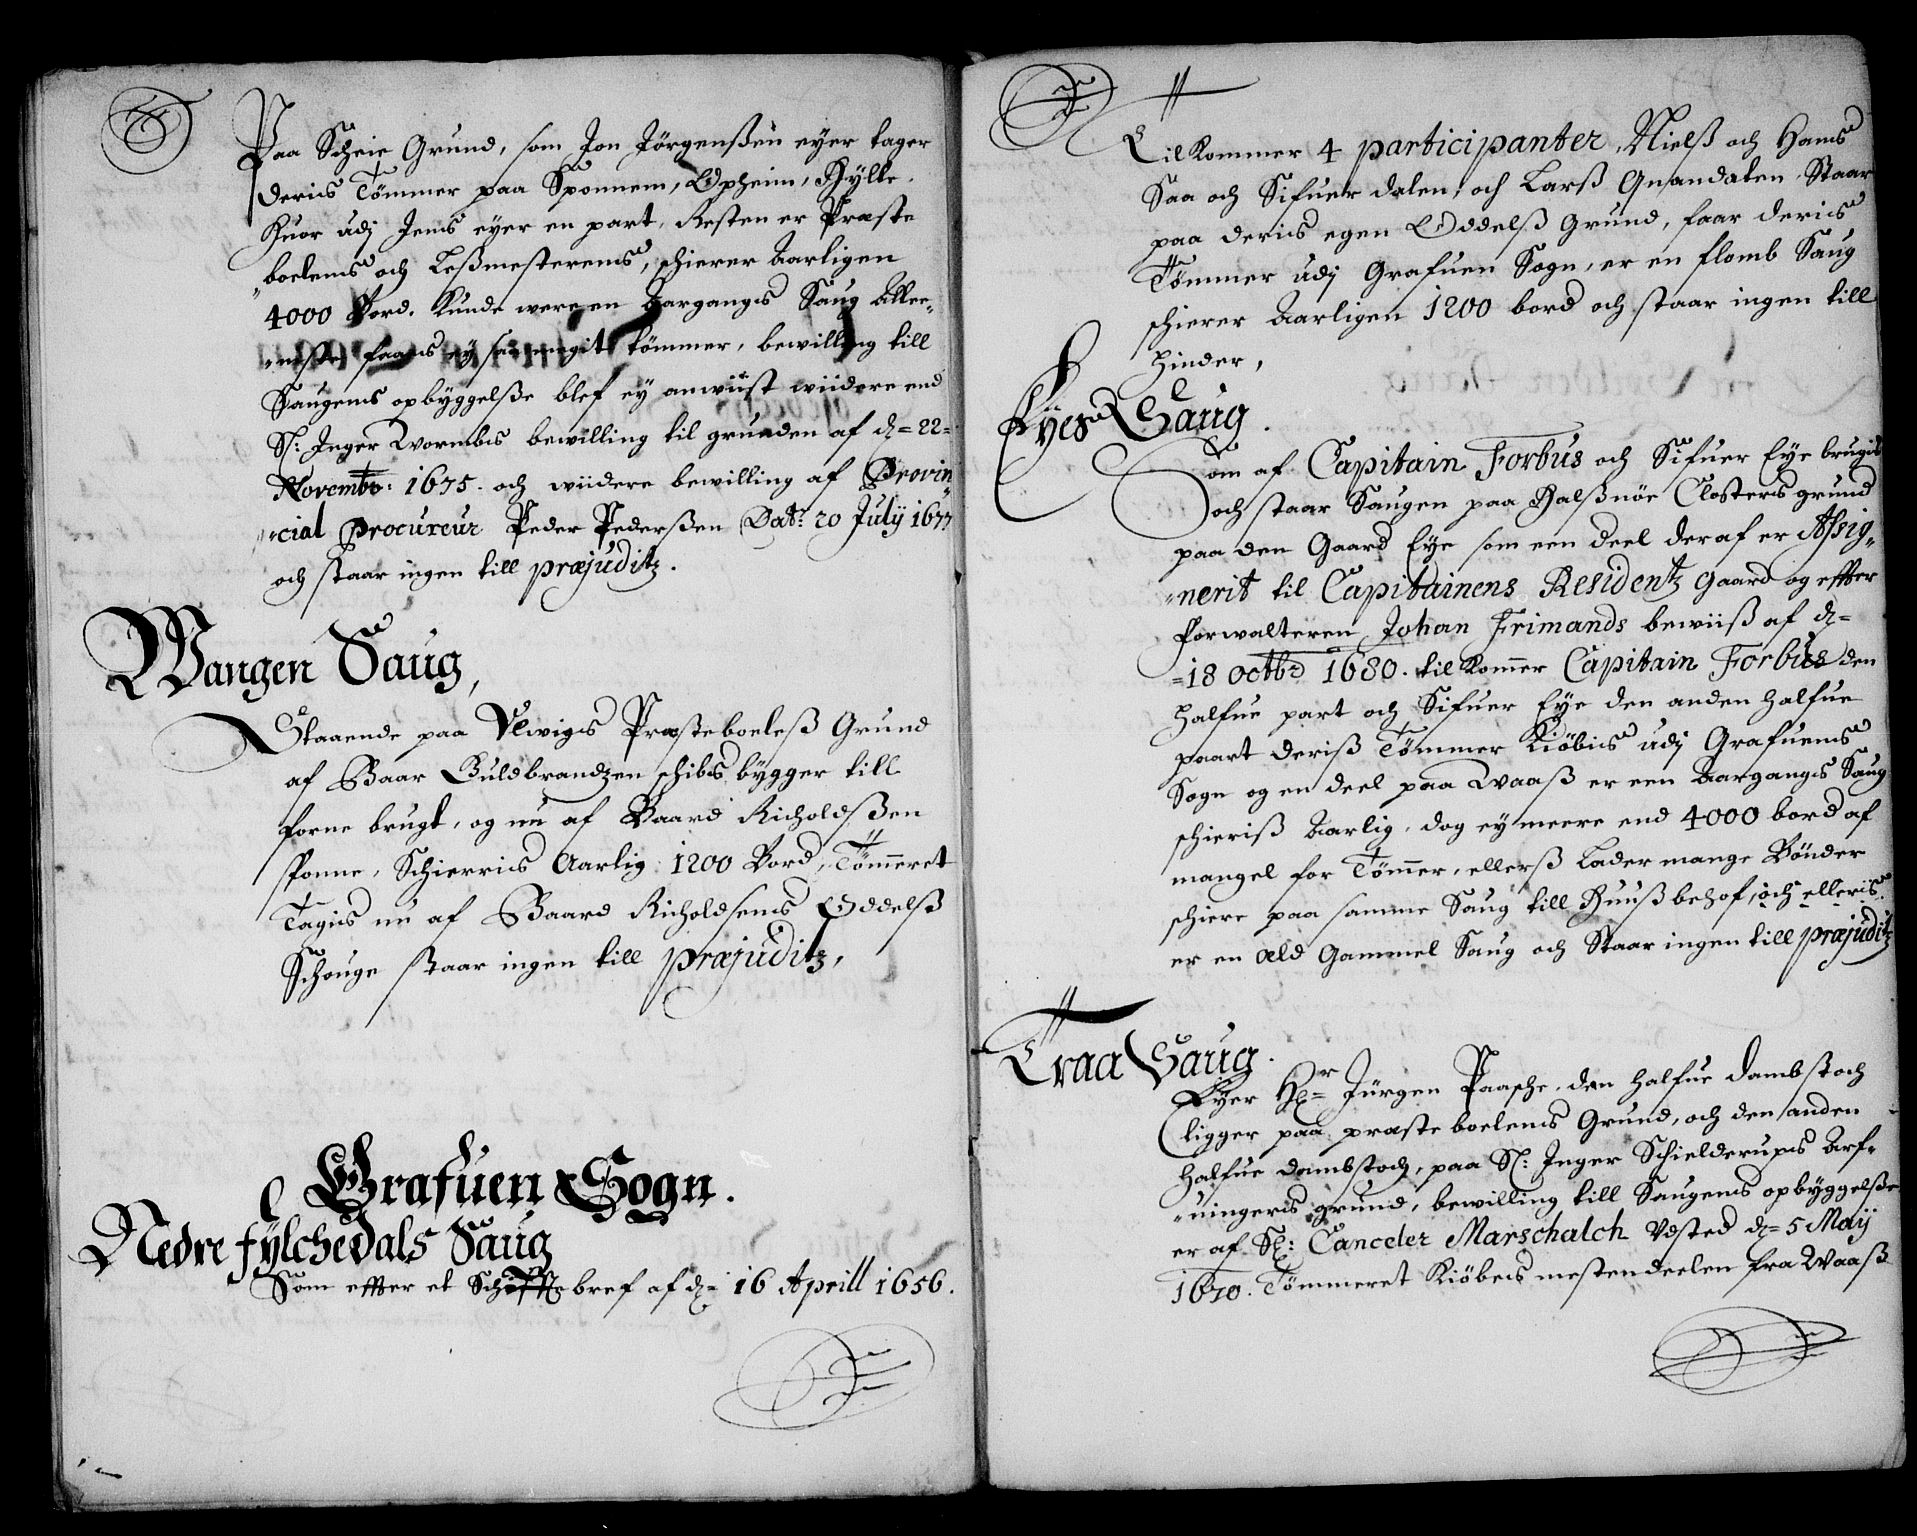 Paa Scheie Grund, som Jon Jörgenßen eyer tager
deris Tömmer paa Sponnem, Opheim, Hylle.
huor udj Jens eyer en part, Resten er Præste
boelens och Leßmesterens, schierer Aarligen
4000 Bord. Kunde were en Aargangs Saug Allee-
niste faaes ey saa megit tömmer, bewilling till
Saugens opbyggelße blef ey anwiist wiidere end
Sl: Inger Wormbs bewilling til grunden af d= 22=
Novembr: 1675. och wiidere bewilling af Provin
cial Procureur Peder Pederßen Dat: 20 Julij 1677
och staar ingen till præjuditz.
Wangen Saug,
Staaende paa Ulwigs Præsteboeleß Grund
af Baar Guldbrandzen schibs bygger till
forne brugt, og nu af Baard Richoldßen
Sponne, Schierris Aarlig 1200 Bord, Tömmeret
Tagis nu af Baard Richoldsens Oddelß
Schouge staar ingen till præjuditz,
Grafuen Sogn.
Nedre fylchedals Saug
Som effter et bref af d= 16 Aprill 1656.
Tilkommer 4 participanter, Nielß och Hans
Saa och Sifuer dalen, och Larß Quandalen Staar
paa deris egen Oddelß Grund, faar deris
Tömmer udj Grafuen Sogn, er en flomb Saug
schierer Aarligen 1200 bord och staar ingen till
hinder,
Eyes Saug.
Som af Capitain Forbus och Sifuer Eye brugis
och staar Saugen paa Halßnöe Closters grund
paa den Gaard Eye som een deel deraf er Assig-
nerit til Capitainens Residentz gaard og effter
Forwalteren Johan Frimands bewiiß af d=
=18 octbr 1680. tilkomer Capitain Forbus den
halfue part och Sifuer Eye den anden halfue
paart deriß Tömmer Kiöbis udj Grafuens
Sogn og en deel paa Waaß er een Aargangs Saug
schieriß Aarlig, dog ey meere end 4000 bord af
mangel for Tömer, ellerß Lader mange Bönder
schiere paa samme Saug till Huuß behof, och elleris
er en Æld Gammel Saug och Staar ingen till præjuditz
Traa Saug.
Eyer Hr= Jürgen Paasche, den halfue dambstoch
ligger paa præste boelens Grund, och den anden
halfue dambstoch, paa Sl: Inger Schielderups Arf-
uingers grund, bewilling till Saugens opbyggelße
er af Sl: Canceler Marschalch Udsted d= 5 Maij
1670. Tömmeret Kiöbes mestendeelen fra Waaß